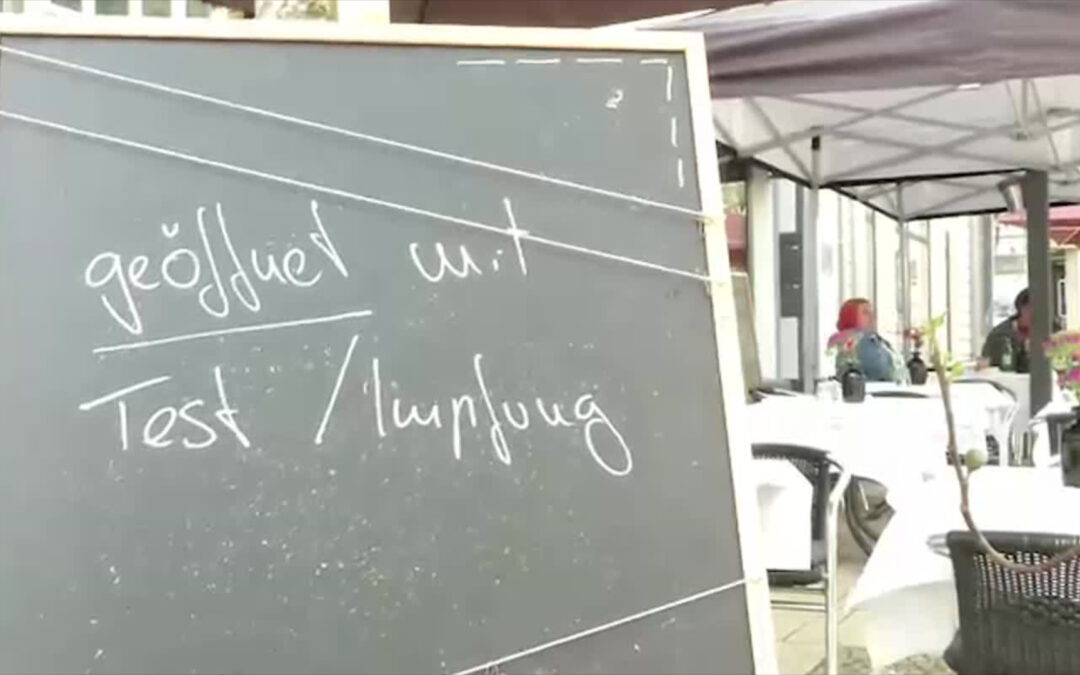 geöffnet mit
Test / Impfung